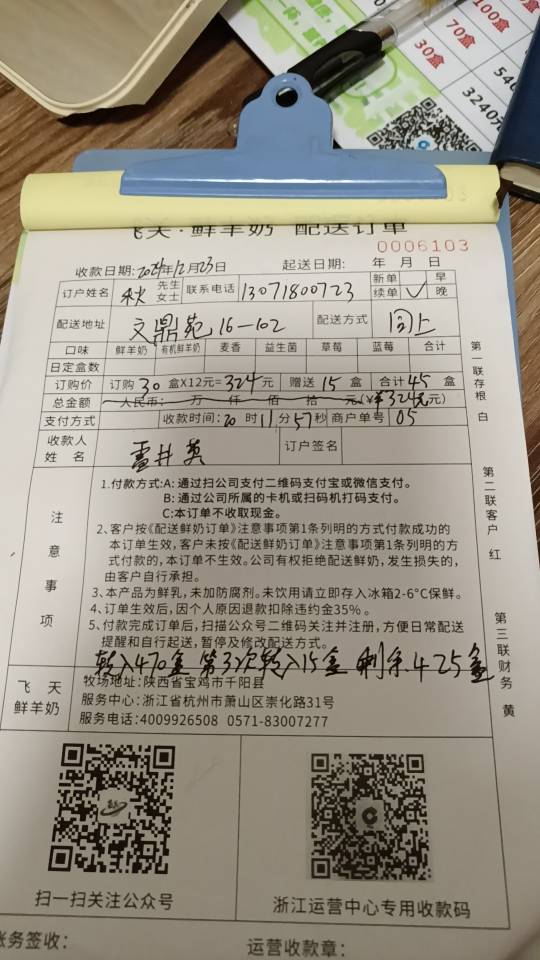 100盒
70盒
30盒
540
3240元
飞天·鲜羊奶 配送订单
0006103
收款日期: 2024年12月23日 起送日期: 年 月 日
订户姓名 秋 先生 女士 联系电话 13071800723 新单 续单 ✓ 早 晚
配送地址 文鼎苑16-102 配送方式 同上
口味 鲜羊奶 有机鲜羊奶 麦香 益生菌 草莓 蓝莓 合计
日定盒数
订购价 订购30盒X12元=324元 赠送15盒 合计45盒
总金额 人民币: 万 仟 佰 拾 元(¥324元元)
支付方式 收款时间: 20时11分57秒 商户单号 05
收款人姓名 订户签名
注意事项
1.付款方式:A: 通过扫公司支付二维码支付宝或微信支付。
B: 通过公司所属的卡机或扫码机打码支付。
C:本订单不收取现金。
2、客户按《配送鲜奶订单》注意事项第1条列明的方式付款成功的
本订单生效，客户未按《配送鲜奶订单》注意事项第1条列明的方
式付款的，本订单不生效。公司有权拒绝配送鲜奶，发生损失的，
由客户自行承担。
3、本产品为鲜乳，未加防腐剂。未饮用请立即存入冰箱2-6°C保鲜。
4、订单生效后，因个人原因退款扣除违约金35%。
5、付款完成订单后，扫描公众号二维码关注并注册，方便日常配送
提醒和自行起送，暂停及修改配送方式。
转入470盒 第3次转入15盒 剩余425盒
飞天鲜羊奶
牧场地址:陕西省宝鸡市千阳县
服务中心:浙江省杭州市萧山区崇化路31号
服务电话:4009926508 0571-83007277
扫一扫关注公众号
浙江运营中心专用收款码
账务签收:
运营收款章:
第一联存根 白
第二联客户 红
第三联财务 黄